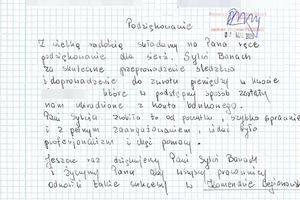 Podziękowanie
Z wielką radością składamy na Pana ręce
podziękowanie dla sierż. Sylwii Banach
za skuteczne przeprowadzenie śledztwa
i doprowadzenie do zwrotu pieniędzy w kwocie
które w podstępny sposób zostały
nam ukradzione z konta bankowego.
Pani Sylwia zrobiła to od początku, szybko sprawnie
i z pełnym zaangażowaniem, widać było
profesjonalizm i chęć pomocy.
Jeszcze raz dziękujemy Pani Sylwii Banach
i życzymy Panu, aby wszyscy pracownicy
odnosili takie sukcesy w Komendzie Legionowskiej